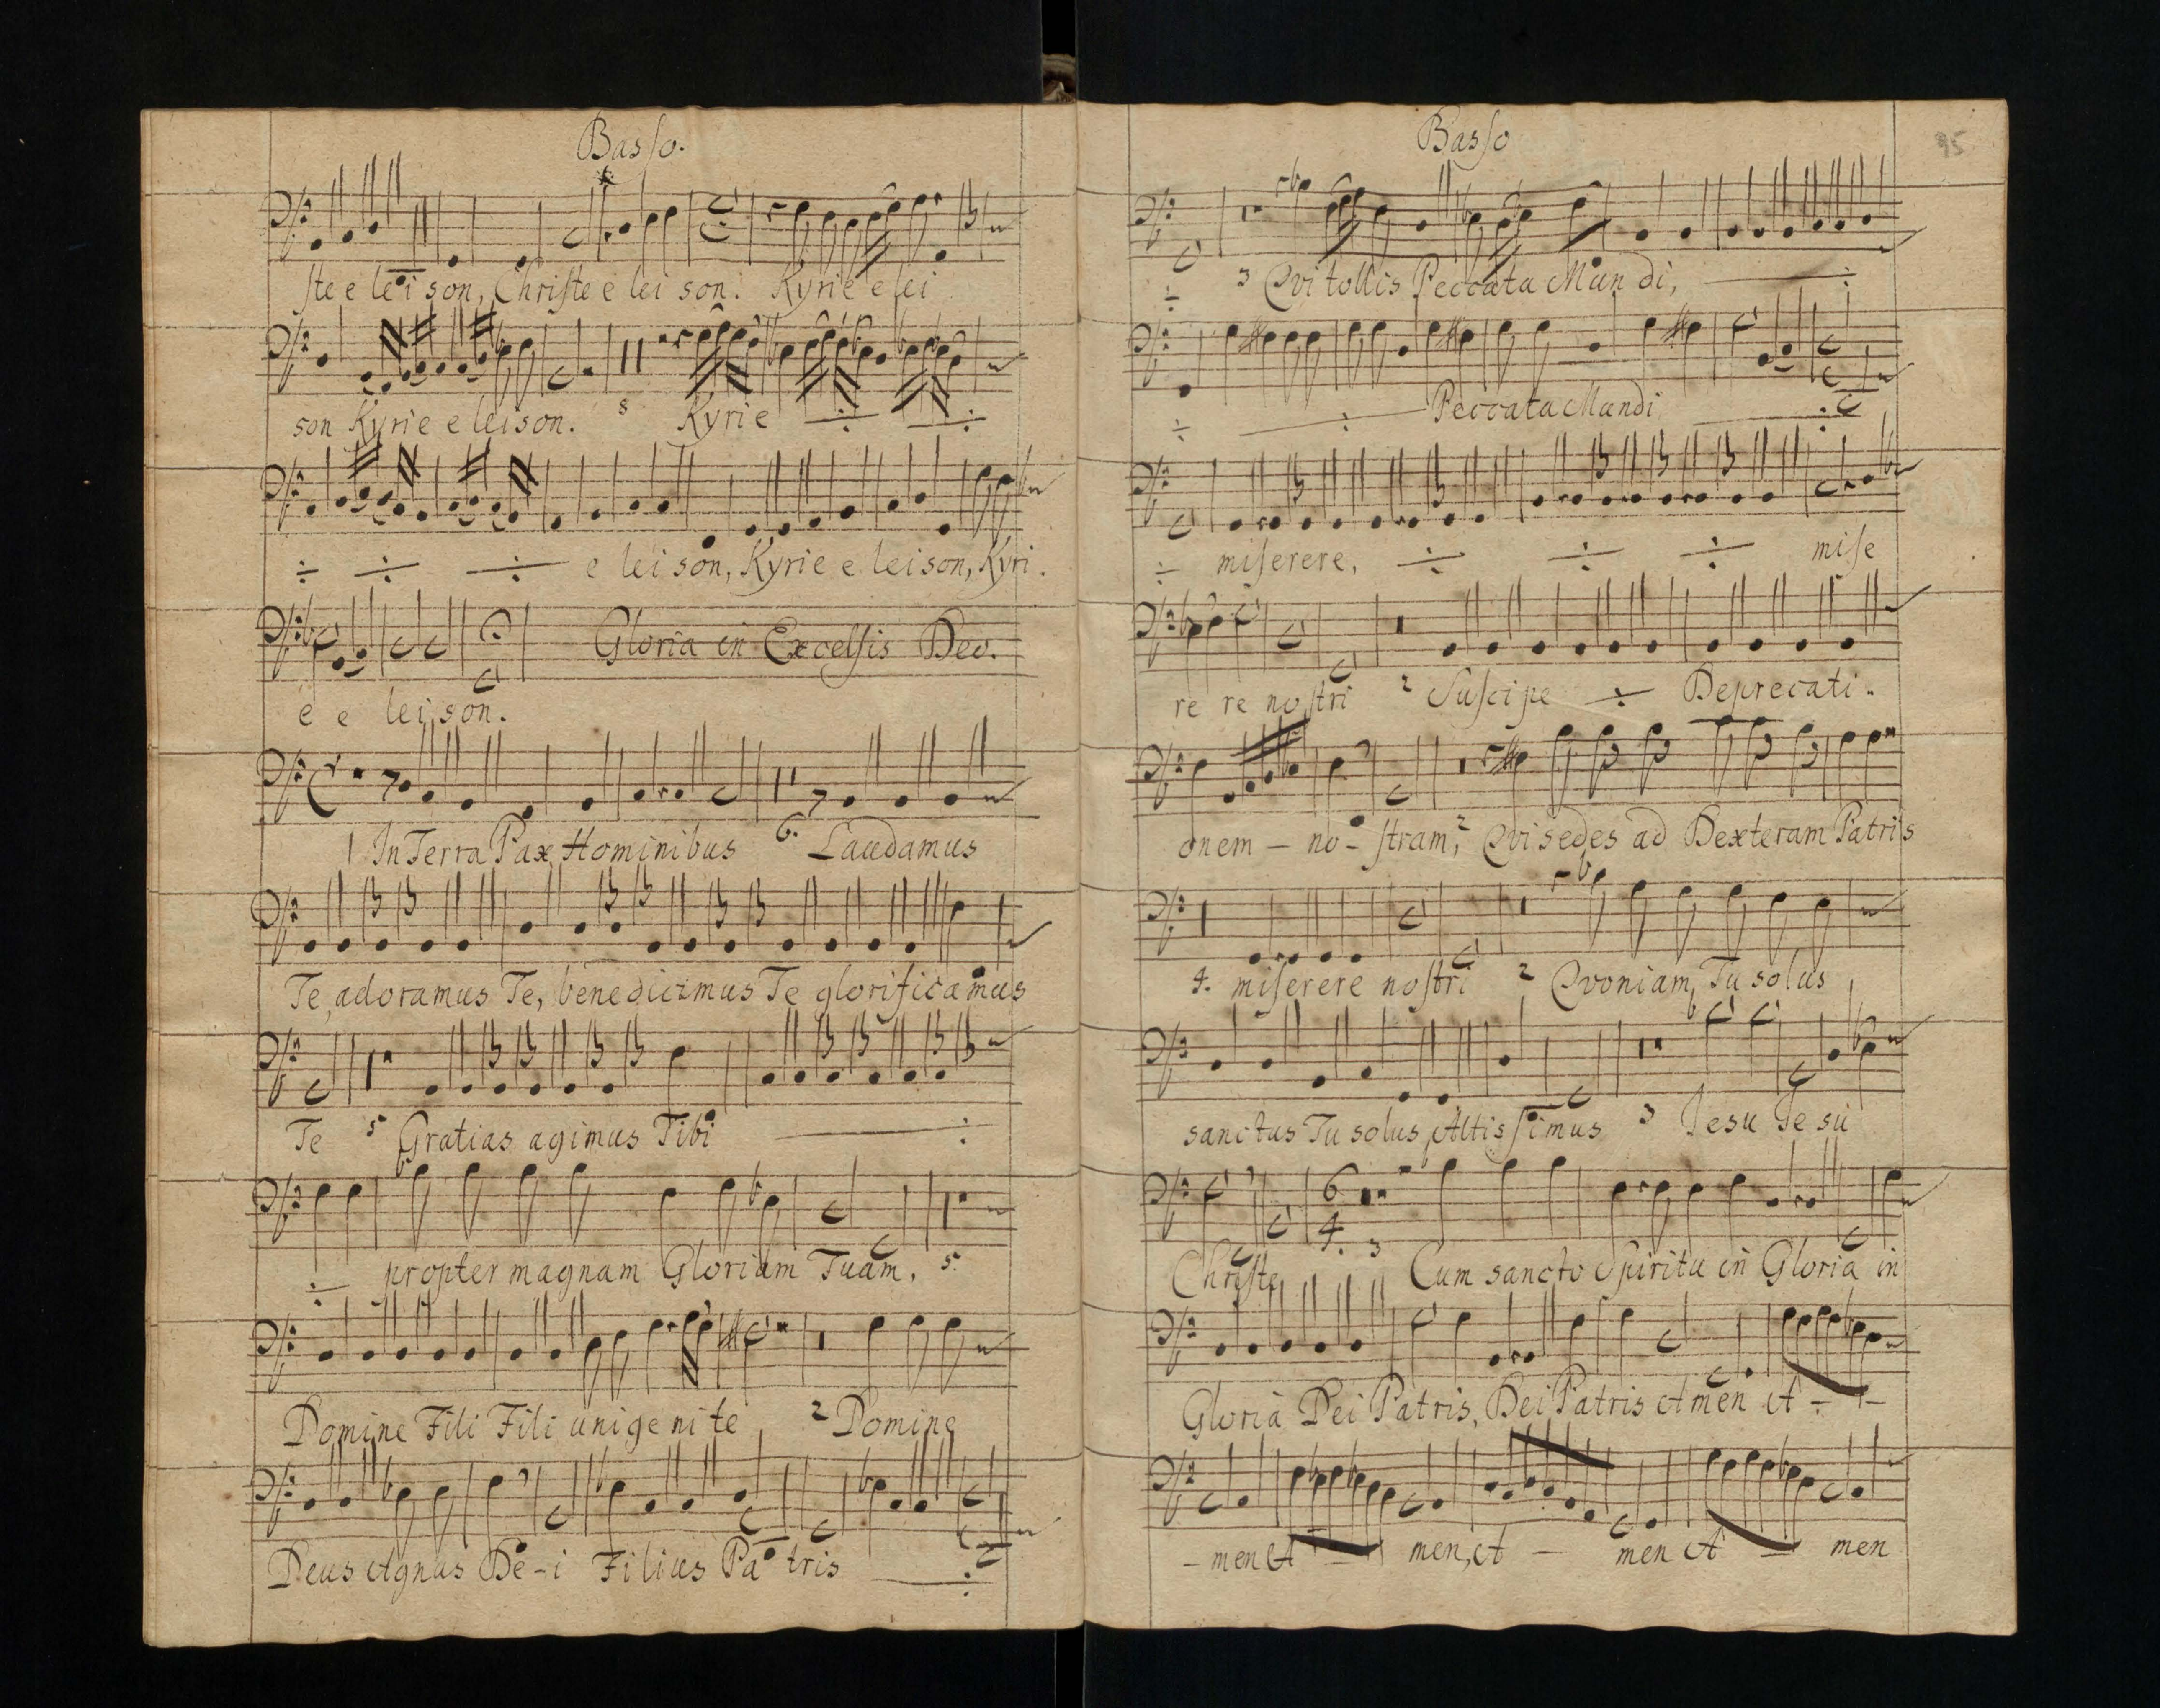 Basso.
ste e leison, Christe e lei son. Kyrie e lei
son Kyrie e leison. 5 Kyrie ÷ ÷
÷ ÷ ÷ e lei son, Kyrie e leison, Kyri.
e e lei son.
Gloria in Excelsis Deo.
1 In Terra Pax Hominibus 6. Laudamus
Te, adoramus Te, benedicimus Te glorificamus
Te 5 Gratias agimus Tibi ÷
÷ propter magnam Gloriam Tuam, 5.
Domine Fili Fili unigenite 2 Domine
Deus Agnus De-i Filius Patris ÷
Basso
95
÷ 3 Qvi tollis Peccata Mundi, ÷
÷ ÷ Peccata Mundi ÷
÷ miserere, ÷ ÷ ÷ mise
re re nostri 2 Suscipe ÷ Deprecati-
onem - no- stram, 2 Qvi sedes ad Dexteram Patris
4. miserere nostri 2 Qvoniam Tu solus
sanctus Tu solus, Altissimus 3 Jesu Jesu
Christe 6 4. 3 Cum sancto Spiritu in Gloria in
Gloria Dei Patris, Dei Patris Amen A - -
- men A - men, A - men A - men